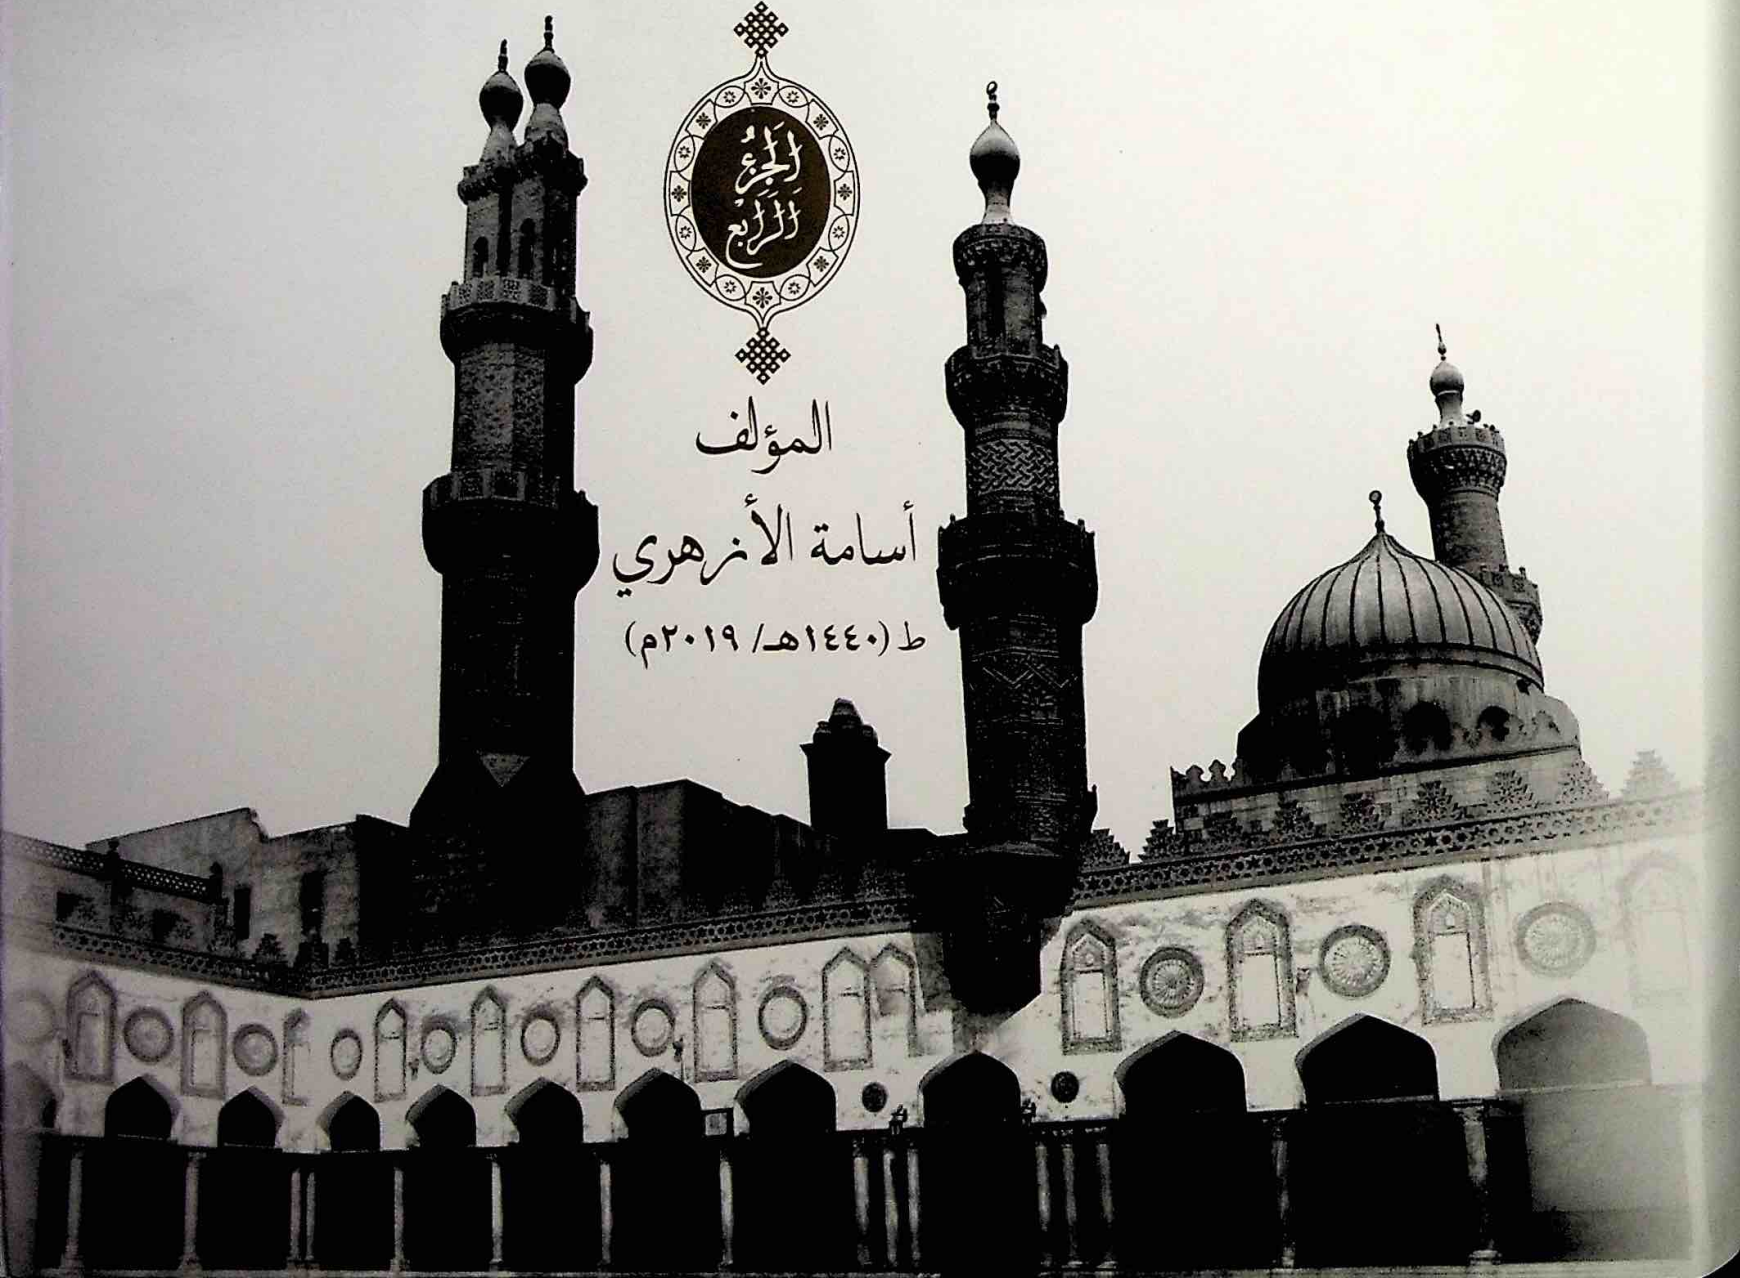 الجُزْءُ
الرَّابِع
المؤلف
أسامة الأزهري
ط (١٤٤٠هـ/ ٢٠١٩م)